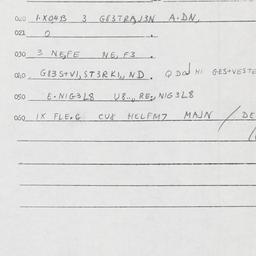 020 1·XQ4B 3 GE3TRAJ3N A·DN.
021 0 .
030 3 NE,FE NE, F3 .
040 G83S+VI, ST3RKI,, ND. HI GES+VESTE
050 E·NIG3L8 U8.., RE2, NIG3L8
060 1X FLE.G CU8 HCLFM7 MAJN / DE